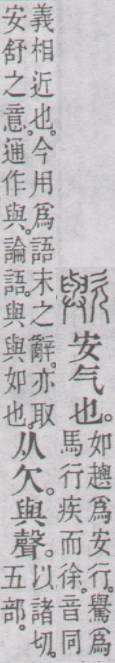 歟
安气也。
如爲安行。爲
馬行疾而徐。音同
義相近也。今用爲語末之辭。亦取
安舒之意。通作與。論語。與與如也。
从欠。與聲。
以諸切。
五部。